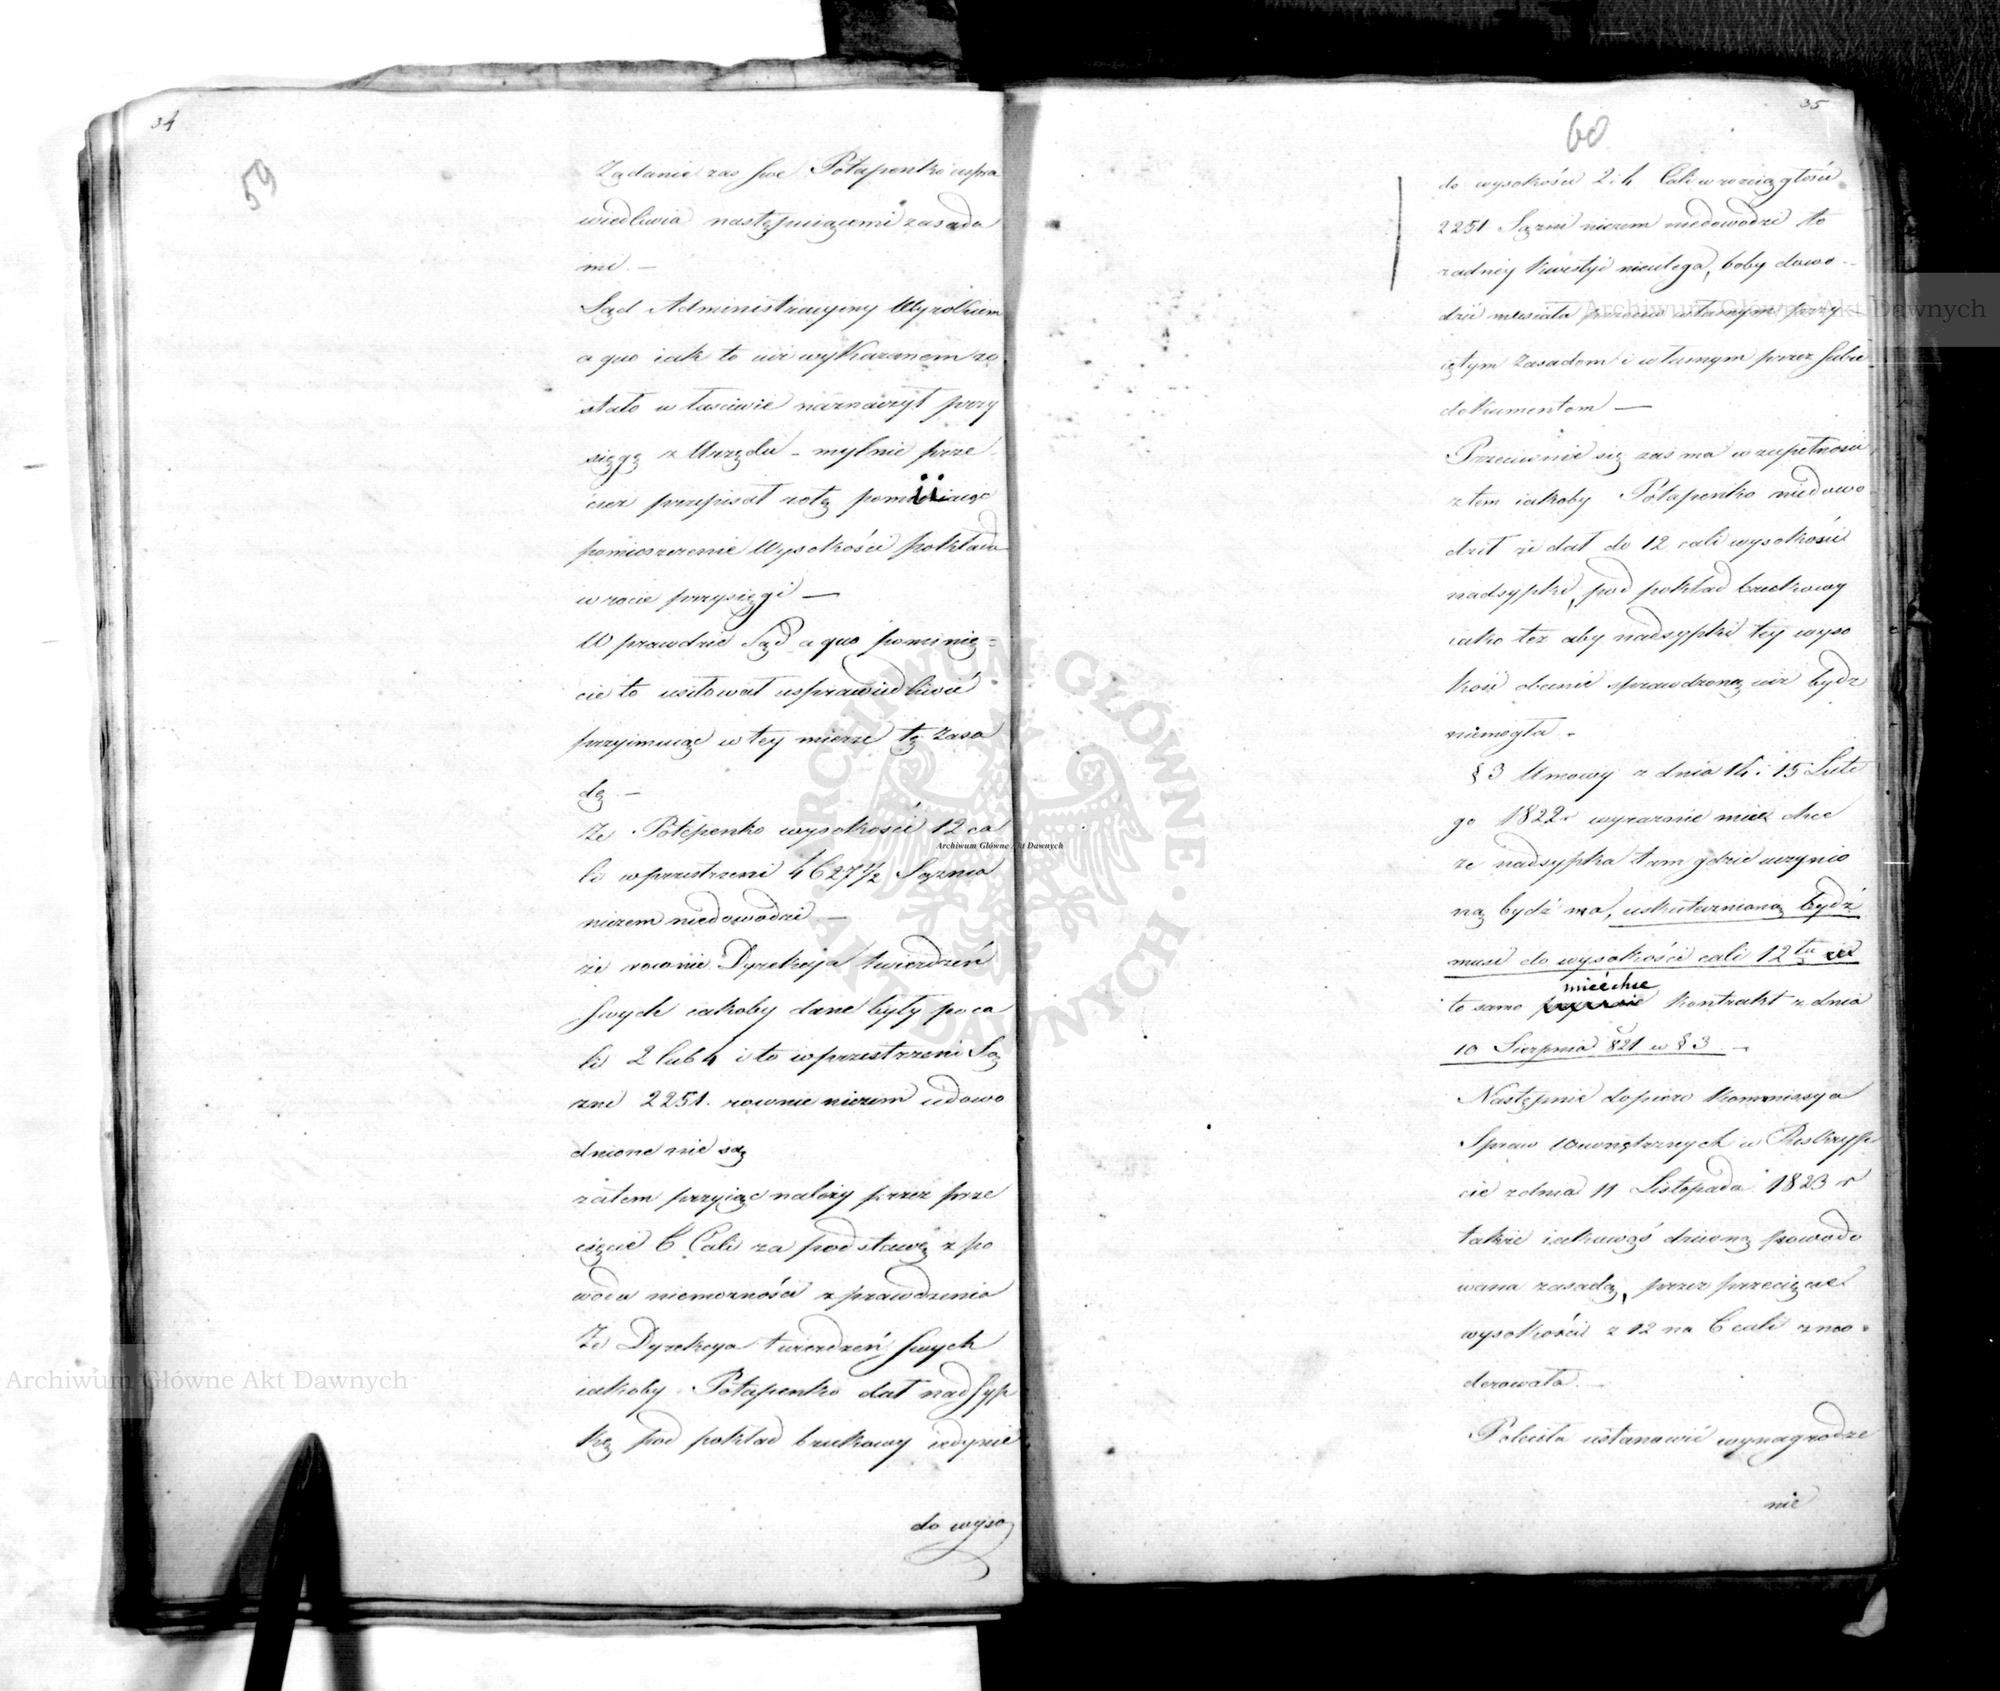 34
59
Ządanie zas swe Potapenko uspra
wiedliwia następuiącemi zasada
mi. —
Sąd Administracyiny Wyrokiem
a quo iak to iuż wykazanem zo
stało właściwie naznaczył przy
sięgę z Urzędu - mylnie prze
ciez przepisał rotę
pomieszczenie wysokości pokładu
w rocie przysięgi —
W prawdzie Sąd a quo pominię=
cie to usiłował usprawiedliwić
przyimuiąc w tey mierze tę zasa
dę. —
Ze Potepenko wysokości 12 ca
li w przestrzeni 4627½ Sążnia
niczem niedowodzi —
że rownie Dyrekcya twierdzeń
swych iakoby dane były po ca
li 2 lub 4 i to w przestrzeni Są
żni 2251. rownie niczem udowo
dnione nie są
zatem przyiąc należy przez prze
cięcie 6 Cali za podstawę z po
wodu niemożności sprawdzenia
Ze Dyrekcya twierdzeń swych
iakoby Potapenko dał nadsyp
kę pod pokład brukowy iedynie
do wyso
35
60
do wysokości 2 i 4 Cali w rozciągłości
2251 Sążni niczem niedowodzi to
zadney kwestyi nieulega, boby dowo-
dzić musiała przeciw własnym przy
iętym zasadom i własnym przez siebie
dokumentom —
Przeciwnie się zaś ma w zupełności
z tem iakoby Potapenko niedowo
dził że dał do 12 cali wysokości
nadsypki, pod pokład brukowy
iako tez aby nadsypki tey wyso
kość obecnie sprawdzoną iuż bydz
niemogła. -
§ 3 Umowy z dnia 14 i 15 Lute
go 1822 r wyraznie mieć chce
ze nadsypka tam gdzie uczynio
ną bydź ma, uskutecznioną bydź
musi do wysokości cali 12tu
mieć chce
to samo kontrakt z dnia
10 Sierpnia 821 w § 3. —
Następnie dopiero Kommissya
Spraw Wewnętrznych w Reskryp
cie z dnia 11 Listopada 1823 r
takze iakąwąś dziwną powodo
wana zasadą, przez przecięcie
wysokość z 12 na 6 cali zmo-
derowała. —
Poleciła ustanowić wynagrodze
nie
Archiwum Główne Akt Dawnych
Archiwum Główne Akt Dawnych
Archiwum Główne Akt Dawnych
ARCHIWUM GŁÓWNE · AKT DAWNYCH ·